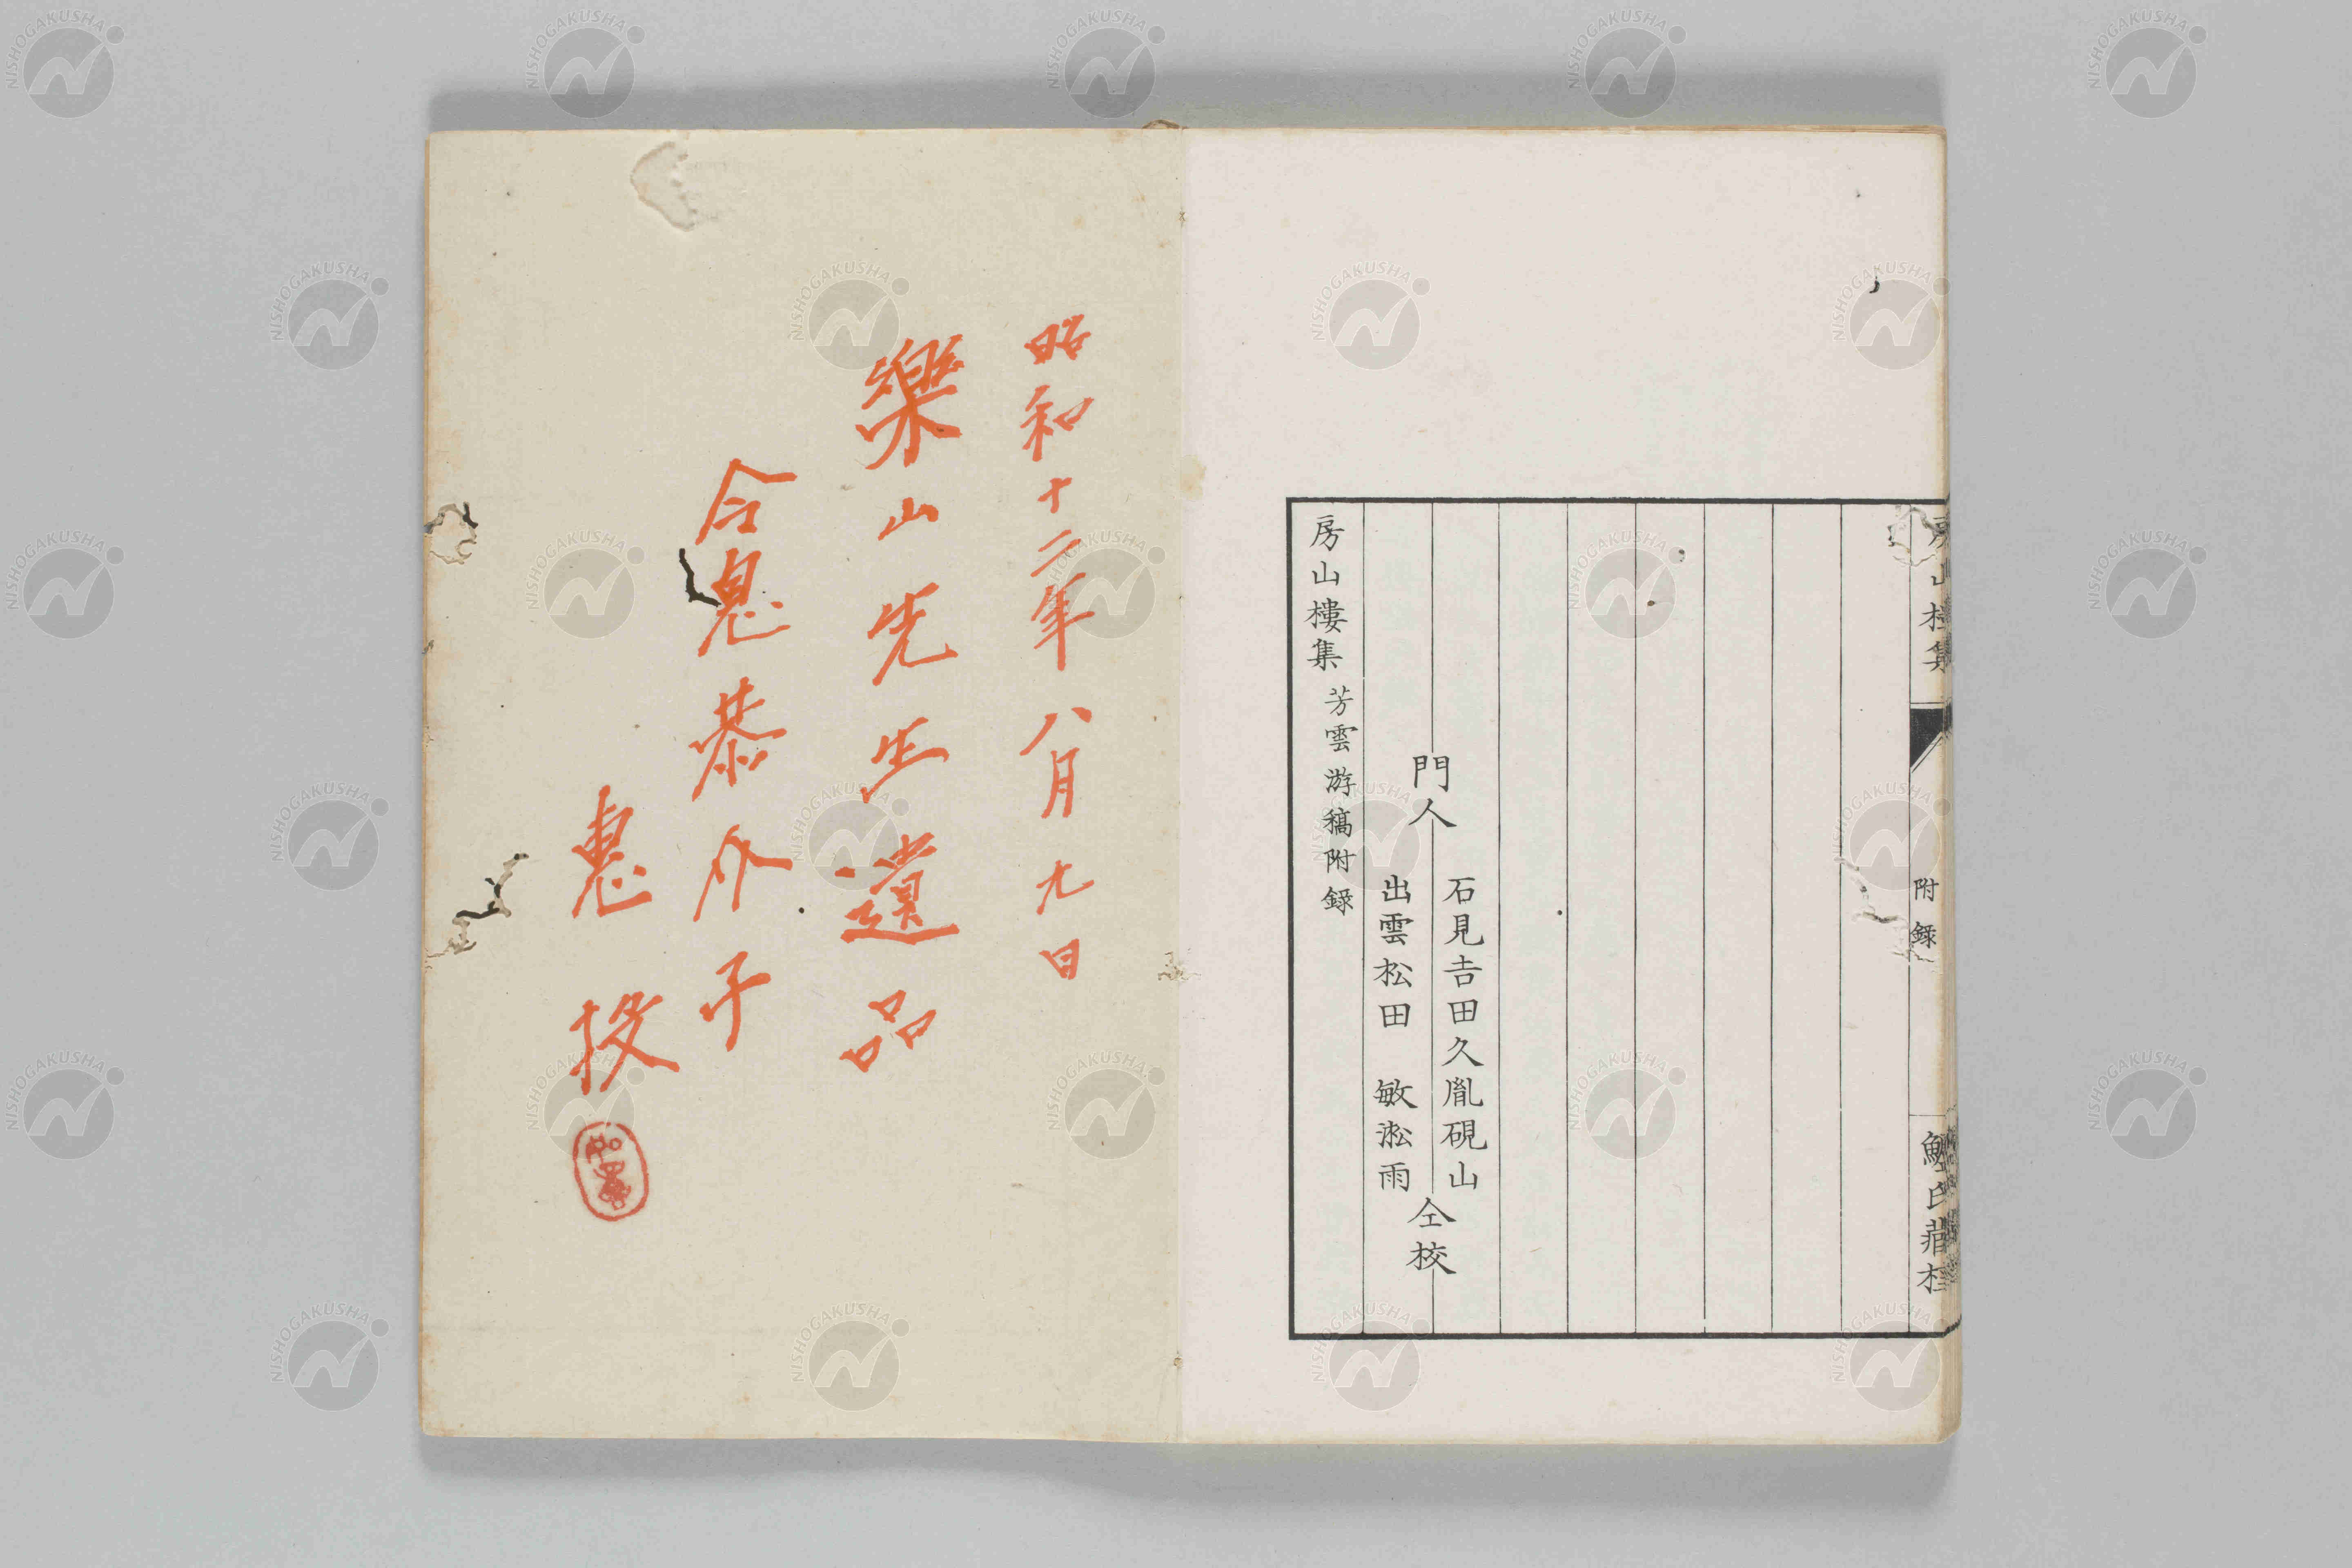 附録
門人
石見吉田久胤硯山
出雲松田 敏淞雨
仝校
房山樓集 芳雲游稿附録
昭和十二年八月九日
樂山先生遺品
令息恭介子
惠投
NISHOGAKUSHA